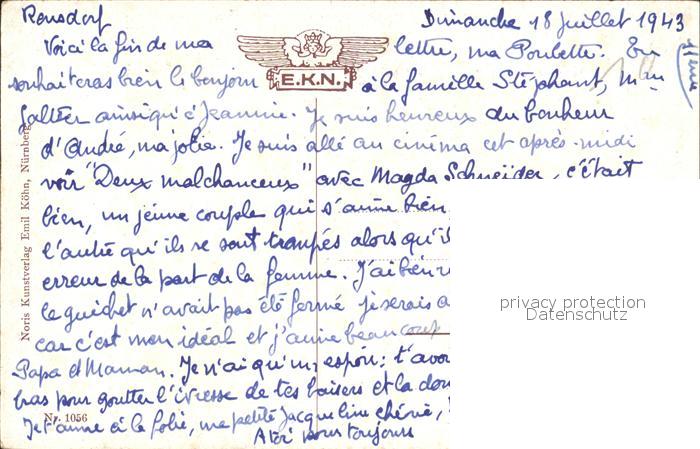 Ronsdorf Dimanche 18 Juillet 1943
Voici la fin de ma lettre, ma Poulette. Tu
souhaiteras bien le bonjour à la famille Stéphant, Mme
E.K.N.
Galtier ainsi qu'à Jeannine. Je suis heureux du bonheur
d'André, ma jolie. Je suis allé au cinéma cet après-midi
voir "Deux malchanceux" avec Magda Schneider, c'était
bien, un jeune couple qui s'aime bien
l'autre qu'ils se sont trompés alors qu'il
erreur de la part de la femme. J'ai bien
le guichet n'avait pas été fermé je serais
car c'est mon idéal et j'aime beaucoup
Papa et Maman. Je n'ai qu'un espoir: t'avoir
bras pour goutter l'ivresse de tes baisers et la
Je t'aime à la folie, ma petite Jacqueline chérie,
A toi pour toujours
Noris Kunstverlag Emil Köhn, Nürnberg
Nr. 1056
privacy protection
Datenschutz